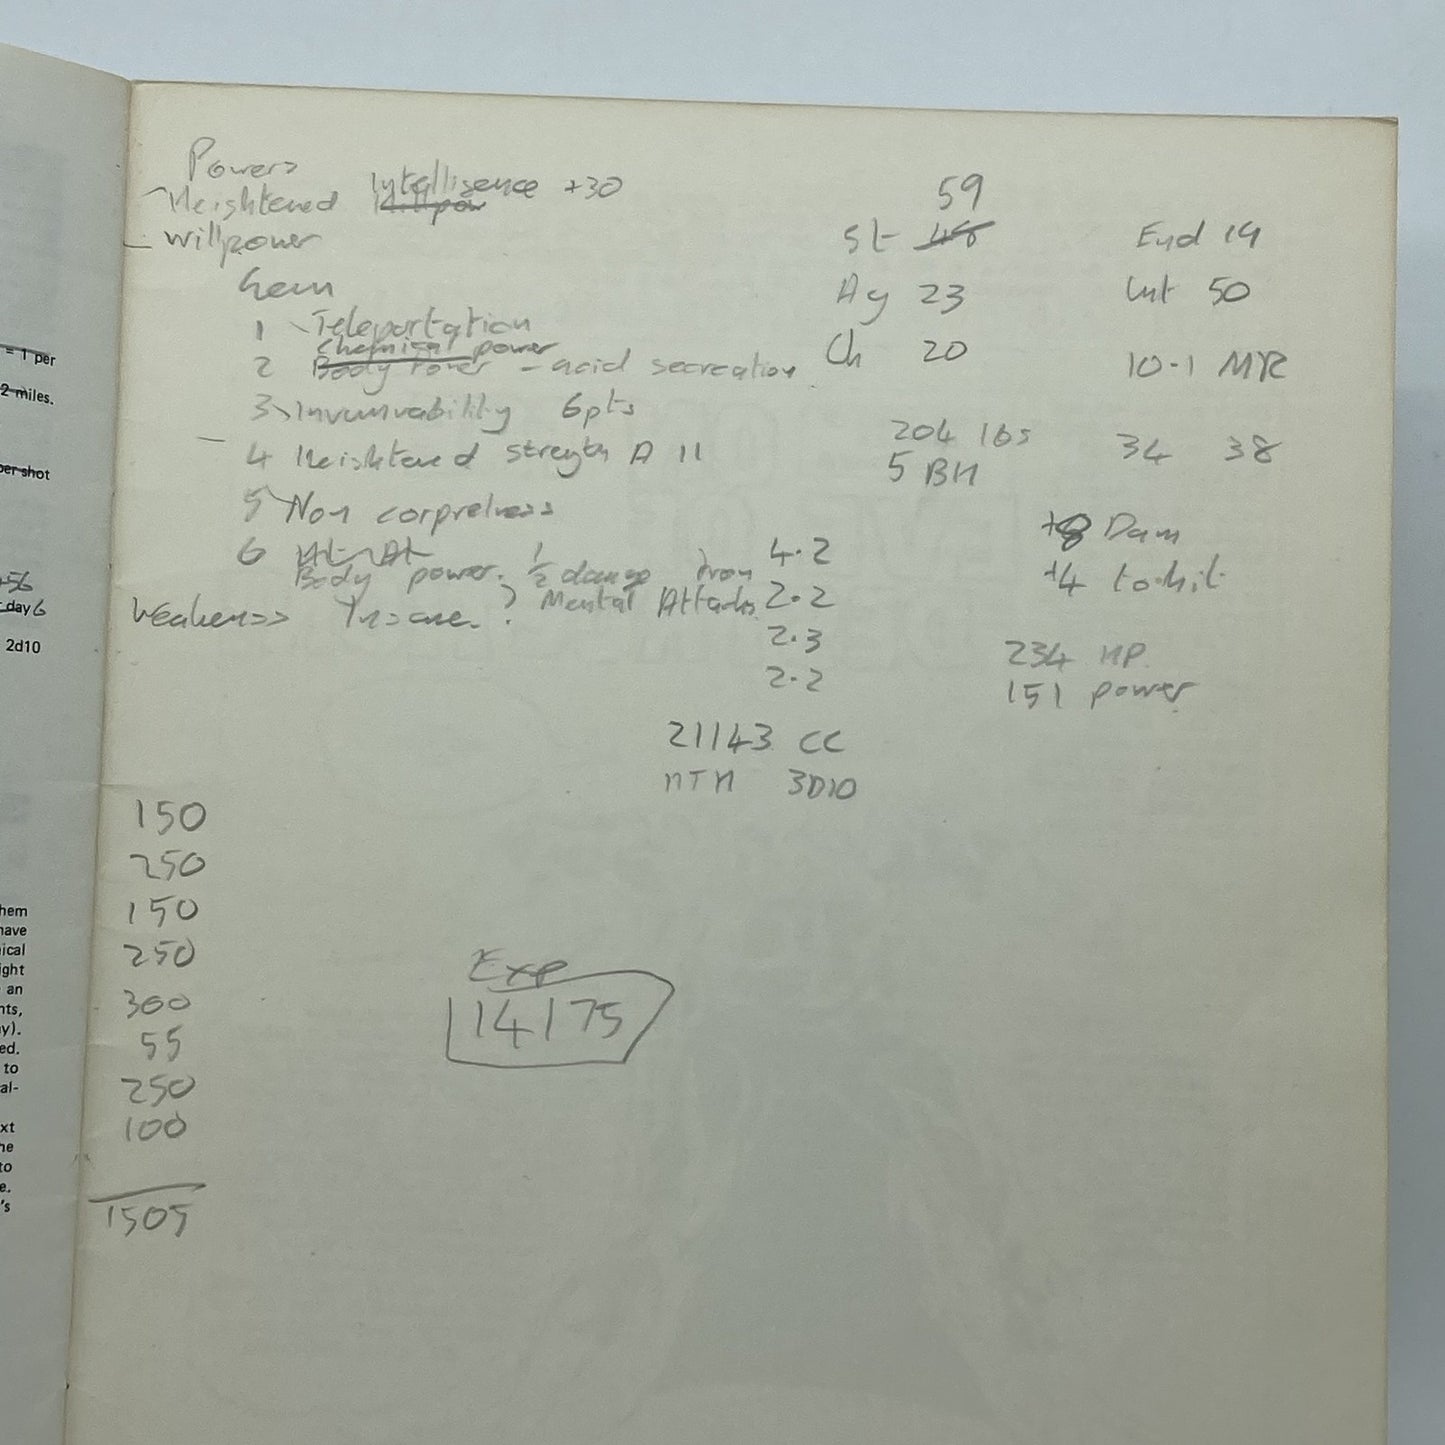 = 1 per
2 miles.
per shot
+56
day 6
2d10
hem
have
ical
ight
an
nts,
y).
ed.
to
al-
xt
he
to
e.
's
Powers
Heightened Intelligence +30
Willpow
- Willpower
Gem
1 Teleportation
Chemical power
2 Body Power - acid secreation
3 Invunrability 6pts
- 4 Heightened strength A 11
5 Non corprelness
6
Body power. 1/2 damage from
Mental Attacks
Weakness Insane.
59
St 48
Ag 23
Ch 20
End 19
Int 50
10.1 MR
204 lbs
5 BH
34 38
+8 Dam
+4 to hit
4.2
2.2
2.3
2.2
234 HP
151 power
21143 CC
HTH 3D10
150
250
150
250
300
55
250
100
1505
Exp
14175